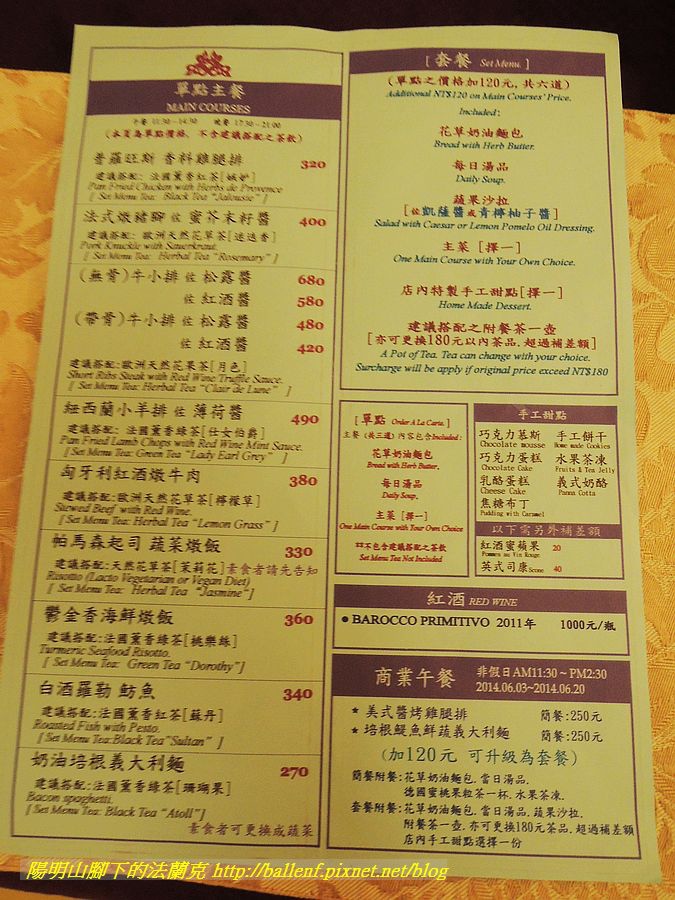 單點主餐
MAIN COURSES
午餐 11:30~14:30 晚餐 17:30~21:00
(本頁為單點價格，不含建議搭配之茶飲)
普羅旺斯 香料雞腿排 320
建議搭配：法國薰香紅茶[嫉妒]
Pan Fried Chicken with Herbs de Provence
[ Set Menu Tea: Black Tea "Jalousie" ]
法式燉豬腳 佐 蜜芥末籽醬 400
建議搭配：歐洲天然花草茶[迷迭香]
Pork Knuckle with Sauerkraut.
[ Set Menu Tea: Herbal Tea "Rosemary" ]
(無骨)牛小排 佐 松露醬 680
佐 紅酒醬 580
(帶骨)牛小排 佐 松露醬 480
佐 紅酒醬 420
建議搭配:歐洲天然花果茶[月色]
Short Ribs Steak with Red Wine/Truffle Sauce.
[ Set Menu Tea: Herbal Tea "Clair de Lune" ]
紐西蘭小羊排 佐 薄荷醬 490
建議搭配：法國薰香綠茶[仕女伯爵]
Pan Fried Lamb Chops with Red Wine Mint Sauce.
[ Set Menu Tea: Green Tea "Lady Earl Grey" ]
匈牙利紅酒燉牛肉 380
建議搭配:歐洲天然花草茶[檸檬草]
Stewed Beef with Red Wine.
[ Set Menu Tea: Herbal Tea "Lemon Grass" ]
帕馬森起司 蔬菜燉飯 330
建議搭配:天然花草茶[茉莉花]素食者請先告知
Risotto (Lacto Vegetarian or Vegan Diet)
[ Set Menu Tea: Herbal Tea "Jasmine"]
鬱金香海鮮燉飯 360
建議搭配:法國薰香綠茶[桃樂絲]
Turmeric Seafood Risotto.
[ Set Menu Tea: Green Tea "Dorothy"]
白酒羅勒 魴魚 340
建議搭配:法國薰香紅茶[蘇丹]
Roasted Fish with Pesto.
[ Set Menu Tea:Black Tea"Sultan" ]
奶油培根義大利麵 270
建議搭配:法國薰香綠茶[珊瑚果]
Bacon spaghetti.
[ Set Menu Tea: Black Tea "Atoll"]
素食者可更換成蔬菜
[ 套餐 Set Menu. ]
(單點之價格加120元，共六道)
Additional NT$120 on Main Courses' Price.
Included:
花草奶油麵包
Bread with Herb Butter.
每日湯品
Daily Soup.
蔬果沙拉
[佐凱薩醬或青檸柚子醬]
Salad with Caesar or Lemon Pomelo Oil Dressing.
主菜 [擇一]
One Main Course with Your Own Choice.
店內特製手工甜點[擇一]
Home Made Dessert.
建議搭配之附餐茶一壺
[亦可更換180元以內茶品，超過補差額]
A Pot of Tea. Tea can change with your choice.
Surcharge will be apply if original price exceed NT$180
[單點 Order A La Carte.]
主餐 (共三道) 內容包含Included:
花草奶油麵包
Bread with Herb Butter.
每日湯品
Daily Soup.
主菜 [擇一]
One Main Course with Your Own Choice
**不包含建議搭配之茶飲
Set Menu Tea Not Included
手工甜點
巧克力慕斯 手工餅干
Chocolate mousse Home made Cookies
巧克力蛋糕 水果茶凍
Chocolate Cake Fruits & Tea Jelly
乳酪蛋糕 義式奶酪
Cheese Cake Panna Cotta
焦糖布丁
Pudding with Caramel
以下需另外補差額
紅酒蜜蘋果 20
Pommes au Vin Rouge
英式司康Scone 40
紅酒 RED WINE
● BAROCCO PRIMITIVO 2011年 1000元/瓶
商業午餐 非假日AM11:30~PM2:30
2014.06.03~2014.06.20
★ 美式醬烤雞腿排 簡餐:250元
★ 培根鯷魚鮮蔬義大利麵 簡餐:250元
(加120元 可升級為套餐)
簡餐附餐:花草奶油麵包.當日湯品.
德國蜜桃果粒茶一杯.水果茶凍.
套餐附餐:花草奶油麵包.當日湯品.蔬果沙拉.
附餐茶一壺.亦可更換180元茶品.超過補差額
店內手工甜點選擇一份
陽明山腳下的法蘭克 http://ballenf.pixnet.net/blog